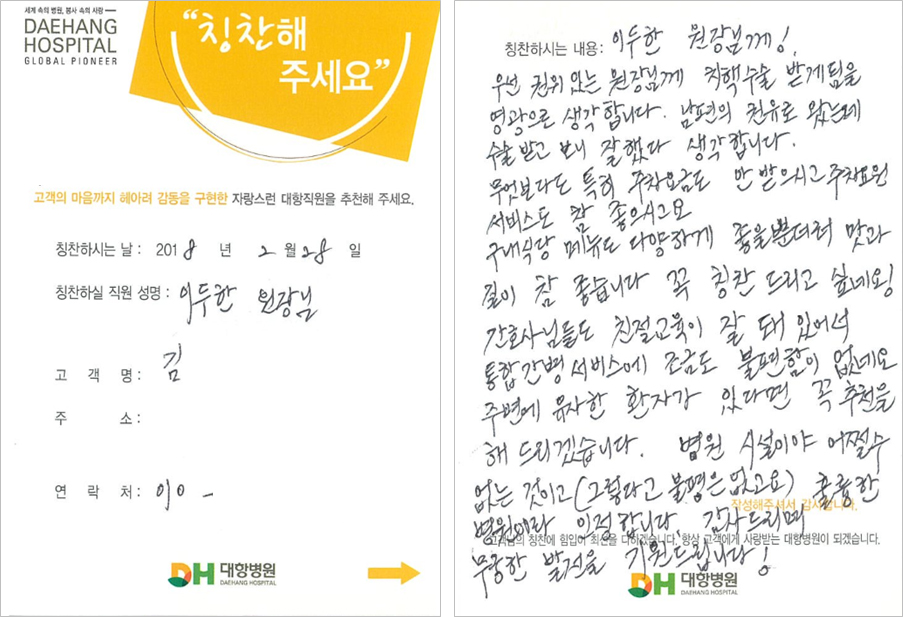 세계 속의 병원, 봉사 속의 사랑
DAEHANG
HOSPITAL
GLOBAL PIONEER
“칭찬해
주세요”
고객의 마음까지 헤아려 감동을 구현한 자랑스런 대항직원을 추천해 주세요.
칭찬하시는 날 : 2018 년 2 월 28 일
칭찬하실 직원 성명 : 이두한 원장님
고 객 명 : 김
주 소 :
연 락 처 : 010 -
DH 대항병원
DAEHANG HOSPITAL
칭찬하시는 내용 : 이두한 원장님께!
우선 권위 있는 원장님께 치핵수술 받게됨을
영광으로 생각합니다. 남편의 권유로 왔는데
수술 받고 보니 잘했다 생각합니다.
무엇보다도 특히 주차요금도 안 받으시고 주차요원
서비스도 참 좋으시고요
구내식당 메뉴도 다양하게 좋을뿐더러 맛과
질이 참 좋습니다 꼭 칭찬 드리고 싶네요!
간호사님들도 친절교육이 잘 돼 있어서
통합간병 서비스에 조금도 불편함이 없네요
주변에 유사한 환자가 있다면 꼭 추천을
해 드리겠습니다. 병원 시설이야 어쩔수
없는 것이고 (그렇다고 불평은 없고요) 훌륭한
작성해주셔서 감사합니다.
병원이라 인정합니다. 감사드리며
고객님의 칭찬에 힘입어 최선을 다하겠습니다. 항상 고객에게 사랑받는 대항병원이 되겠습니다.
무궁한 발전을 기원드립니다!
DH 대항병원
DAEHANG HOSPITAL